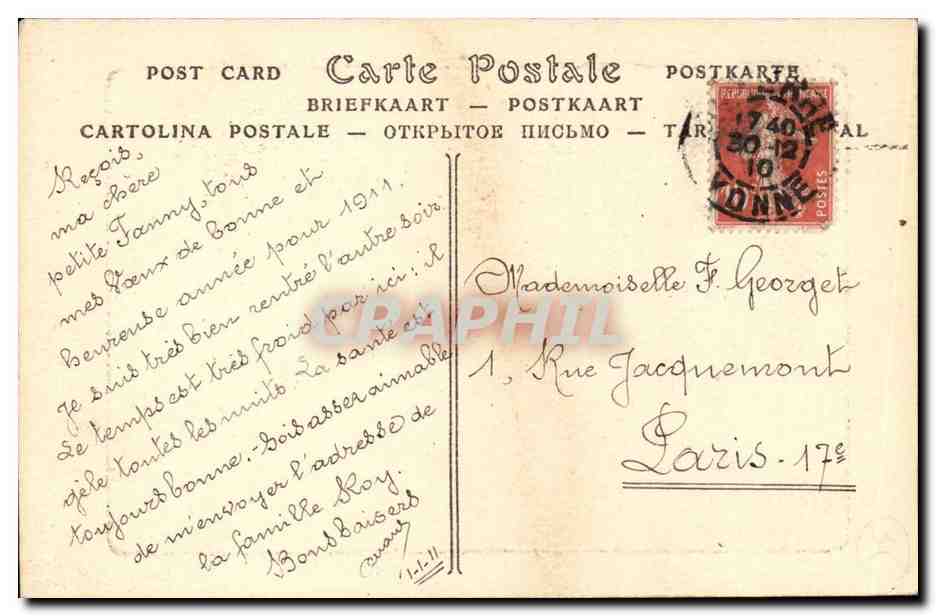 POST CARD Carte Postale POSTKARTE
BRIEFKAART — POSTKAART
CARTOLINA POSTALE — ОТКРЫТОЕ ПИСЬМО — TAR AL
REPUB AISE
17 40
30-12
10
YONNE
POSTES
Reçois,
ma chère
petite Fanny, tous
mes vœux de bonne et
heureuse année pour 1911.
Je suis très bien rentré l'autre soir
Le temps est très froid par ici: il
gèle toutes les nuits. La santé est
toujours bonne. - Sois asser aimable
de m'envoyer l'adresse de
la famille Roy.
Bons baisers
1-1-11
Mademoiselle F. Georget
1, Rue Jacquemont
Paris - 17e
CRAPHIL